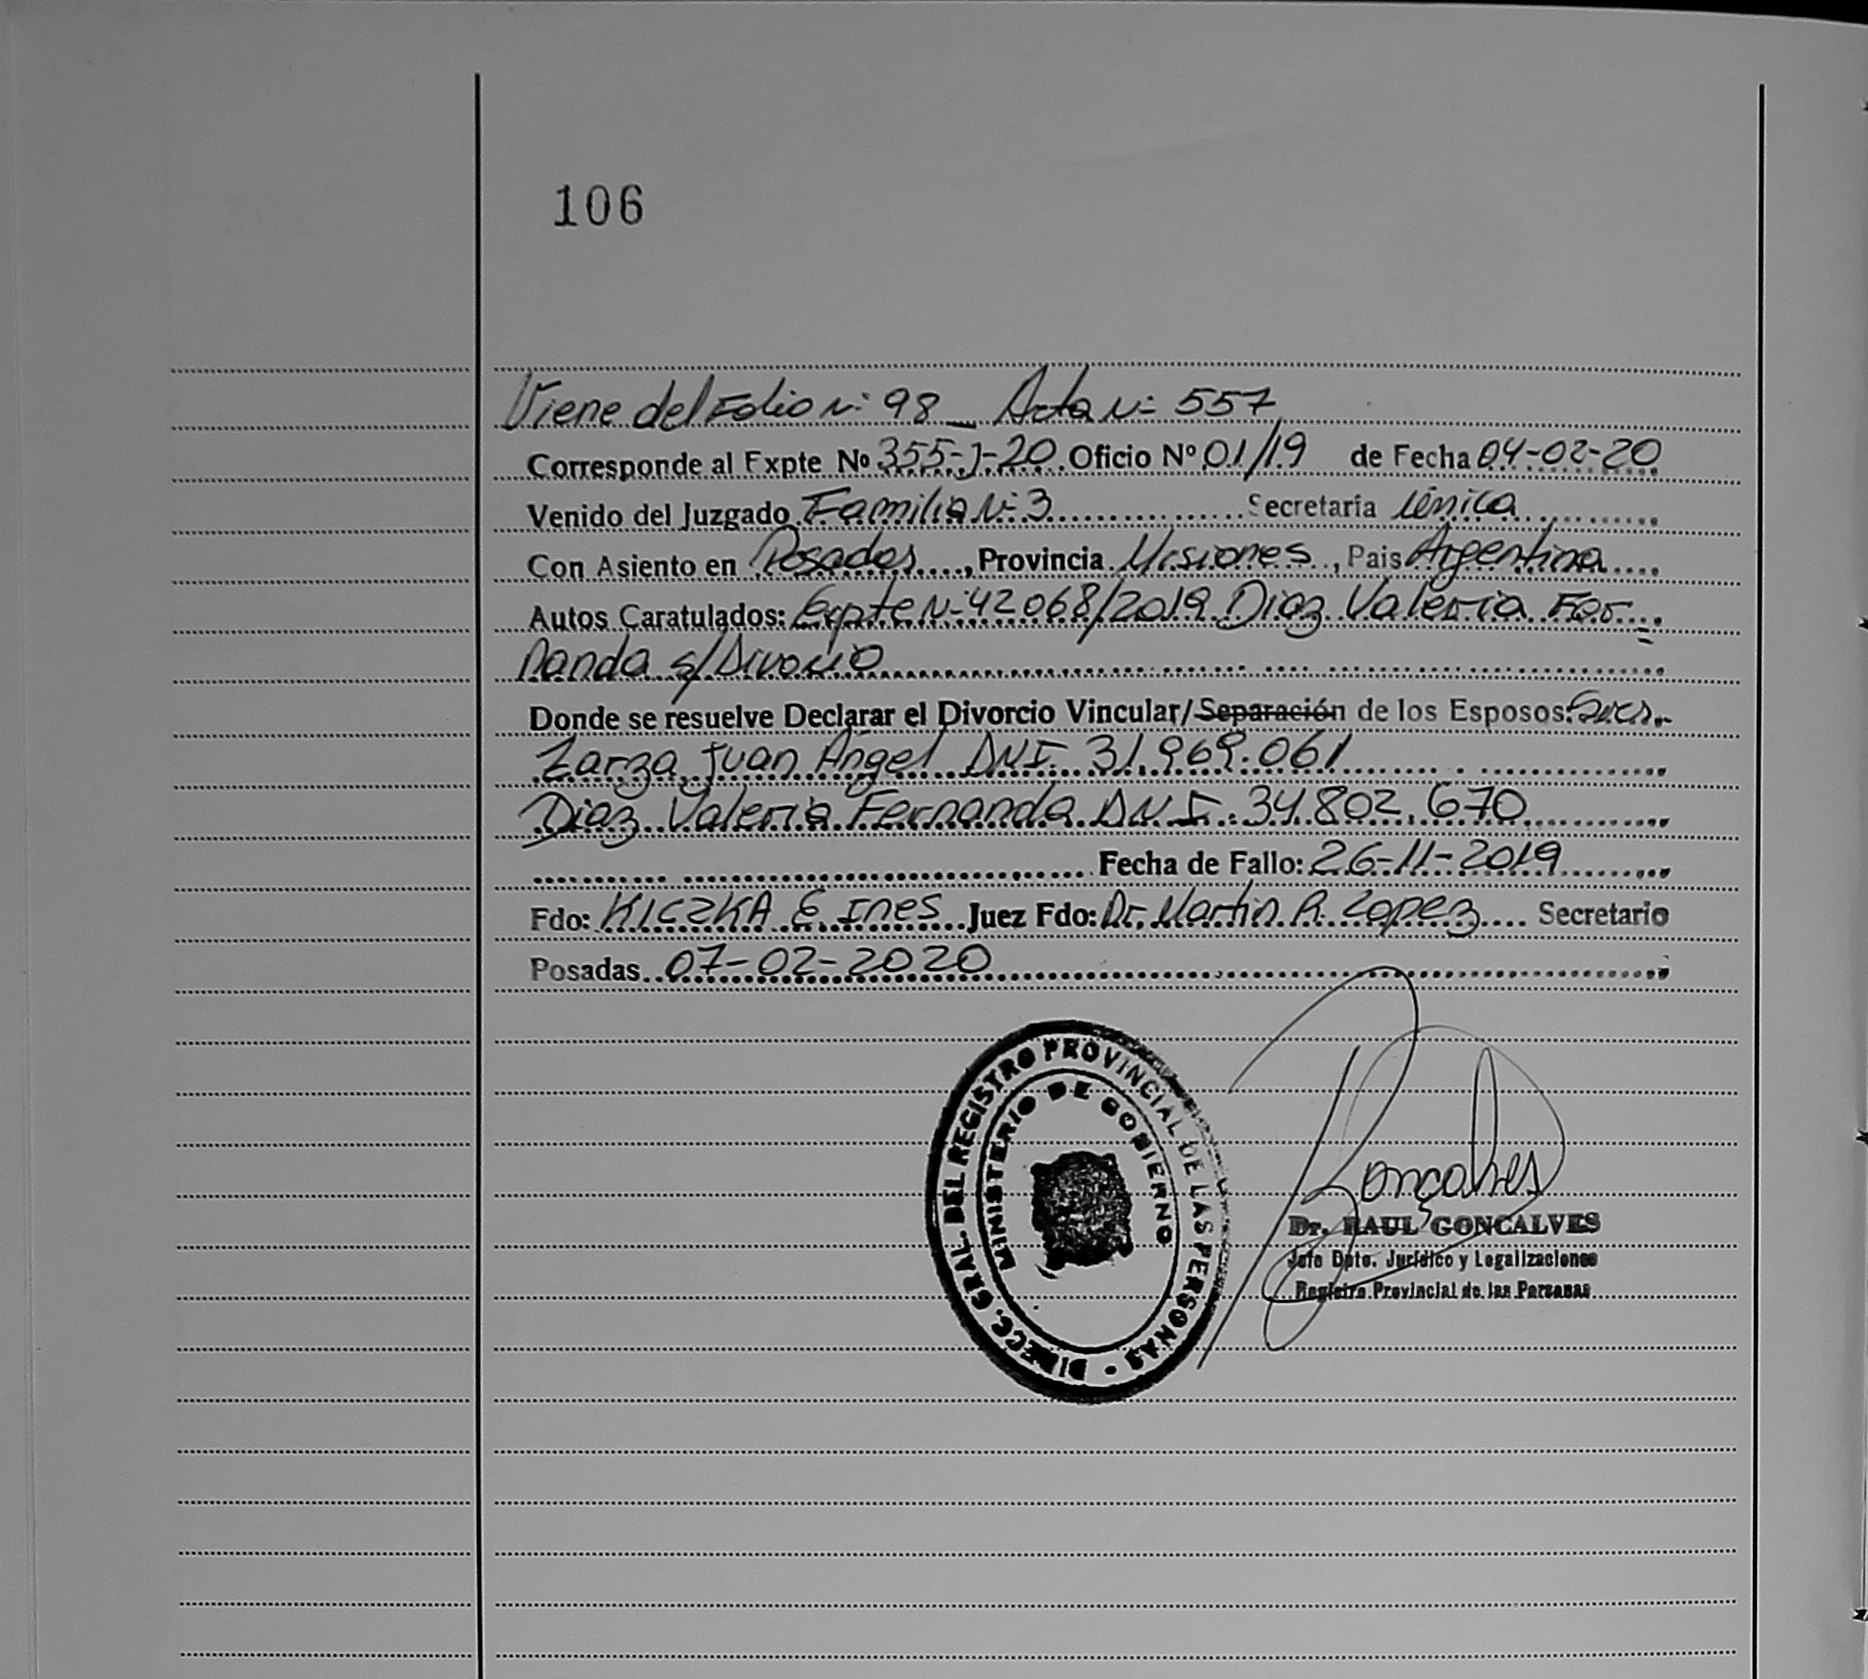 106
Viene del Folio Nº 98 _ Acta Nº 557
Corresponde al Expte Nº 355-J-20 Oficio Nº 01/19 de Fecha 04-02-20
Venido del Juzgado Familia Nº 3 Secretaría única
Con Asiento en Posadas, Provincia Misiones, Pais Argentina
Autos Caratulados: Expte Nº 42068/2019 Diaz Valeria Fer=
nanda s/Divorcio
Donde se resuelve Declarar el Divorcio Vincular/Separación de los Esposos: Sres.
Zarza Juan Angel DNI. 31.969.061
Diaz Valeria Fernanda D.N.I. 34.802.670
Fecha de Fallo: 26-11-2019
Fdo: KICZKA E. Ines Juez Fdo: Dr. Martin R. Lopez Secretario
Posadas 07-02-2020
DIRECC. GRAL. DEL REGISTRO PROVINCIAL DE LAS PERSONAS
MINISTERIO DE GOBIERNO
Goncalves
Dr. RAUL GONCALVES
Jefe Dpto. Jurídico y Legalizaciones
Registro Provincial de las Personas